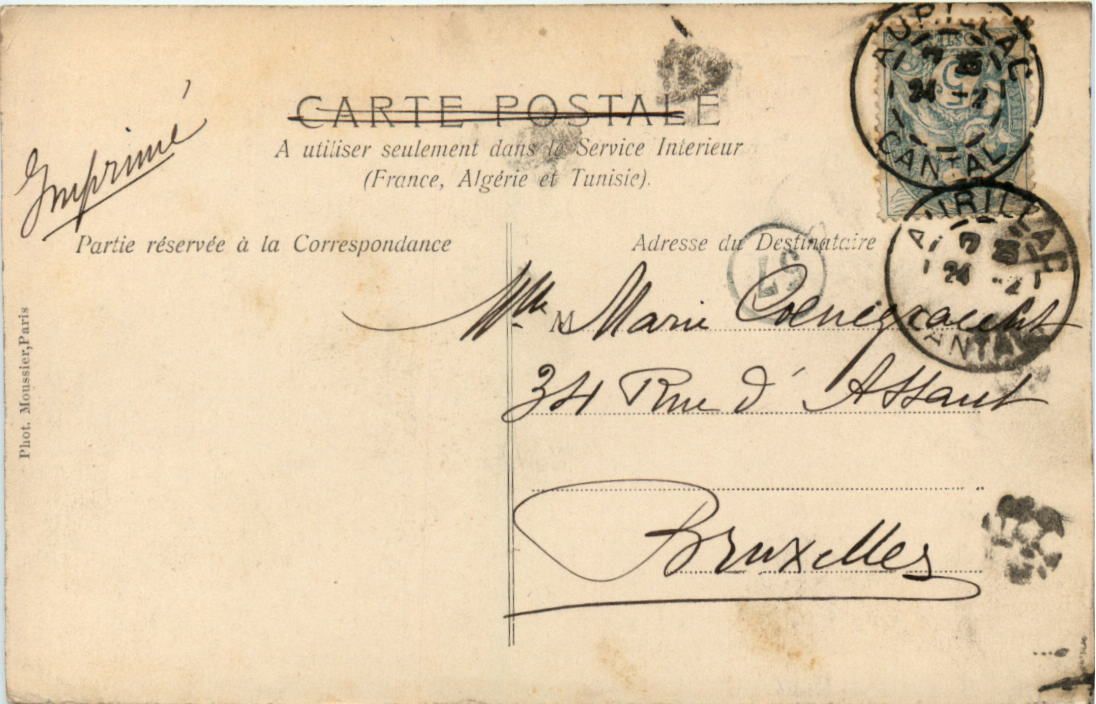 CARTE POSTALE
A utiliser seulement dans le Service Interieur
(France, Algérie et Tunisie).
Imprimé
Partie réservée à la Correspondance
Adresse du Destinataire
Mlle M Marie
34 Rue d'Assaut
Bruxelles
Phot. Moussier, Paris
AURILLAC
24 -2
CANTAL
5
AURILLAC
24 -2
CANTAL
57